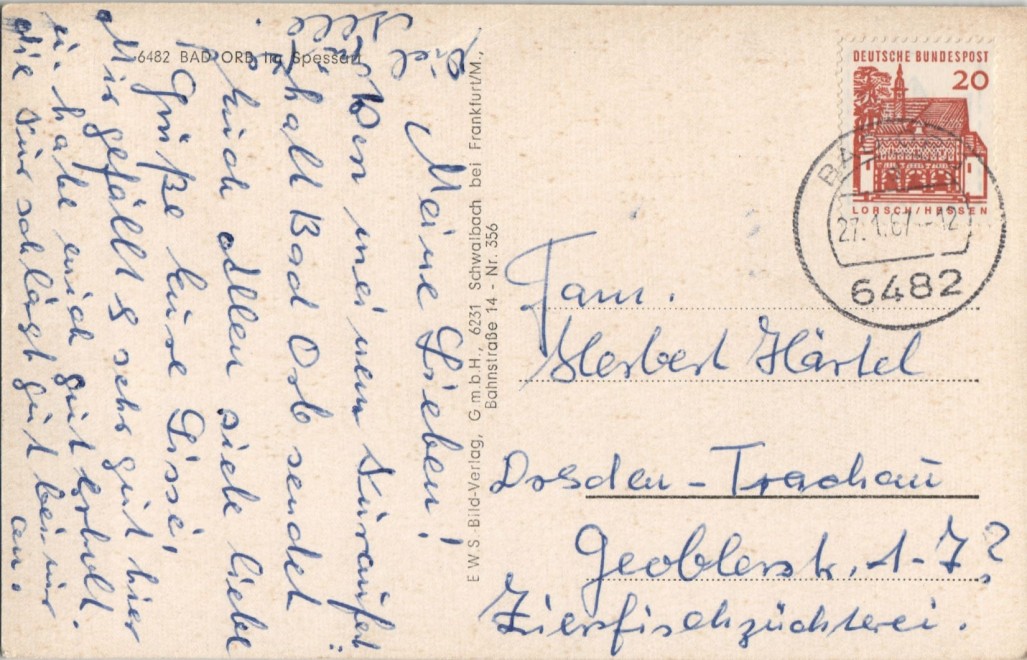 6482 BAD ORB im Spessart
Meine Lieben!
Von meinem Kuraufent
halt Bad Orb sendet
Euch allen viele liebe
Grüße Eure Lissi,
Mir gefällt es sehr gut hier
u. habe mich gut erholt.
die Kur schlägt gut bei mir
an.
Viel
E.W.S.-Bild-Verlag, G.m.b.H., 6231 Schwalbach bei Frankfurt/M.,
Bahnstraße 14 - Nr. 356
DEUTSCHE BUNDESPOST
20
LORSCH/HESSEN
BAD ORB
27.1.67-12
6482
Fam.
Herbert Härtel
Dresden-Trachau
Geoblerstr. 1-7?
Zierfischzüchterei.